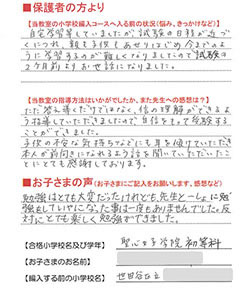 ■保護者の方より
【当教室の小学校編入コースへ入る前の状況(悩み、きっかけなど)】
自宅学習等していましたが、試験の日時が近づ
くにつれ、親も子供もあせりはじめ今までのよ
うに学習するのが難しくなりましたので試験の
2ヶ月前よりお世話になりました。
【当教室の指導方法はいかがでしたか、また先生への感想は?】
ただ答え導くだけではなく、他の理解ができるよ
う指導していただきましたので自信をもって受験する
ことができました。
子供の不安な気持ちなどにも耳を傾けていただき
本人が前向きになれるよう話を聞いていただいたこ
とにとても感謝しております。
■お子さまの声(お子さまにご記入をお願いします。感想など)
勉強はとても大変だったけれども、先生と一しょに勉
強をしていやになった事は一度もありませんでした。反
対にとても楽しく勉強ができました。
【合格小学校名及び学年】 聖心女子学院 初等科
【お子さまのお名前】
【編入する前の小学校名】 世田谷区立